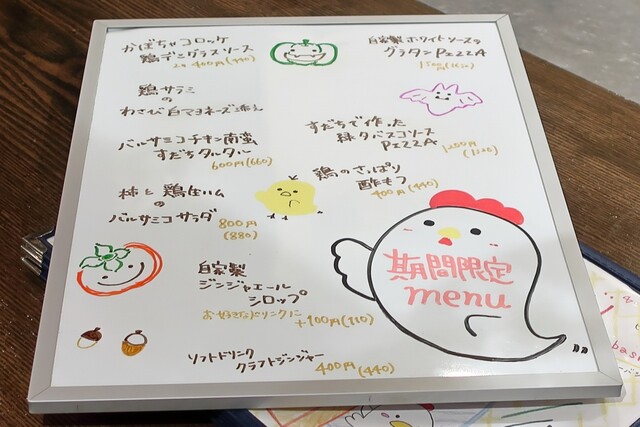 かぼちゃコロッケ
鶏デミグラスソース
2ヶ 400円(440)
鶏サラミ
の
わさび白マヨネーズ添え
バルサミコチキン南蛮
すだちタルタル
600円(660)
柿と鶏生ハム
の
バルサミコサラダ
800円
(880)
自家製
ジンジャエール
シロップ
お好きなドリンクに
+100円(110)
ソフトドリンク
クラフトジンジャー
400円(440)
自家製ホワイトソースの
グラタンPIZZA
1500円(1650)
すだちで作った
緑タバスコソース
PIZZA
1200円
(1320)
鶏のさっぱり
酢もつ
400円(440)
期間限定
menu